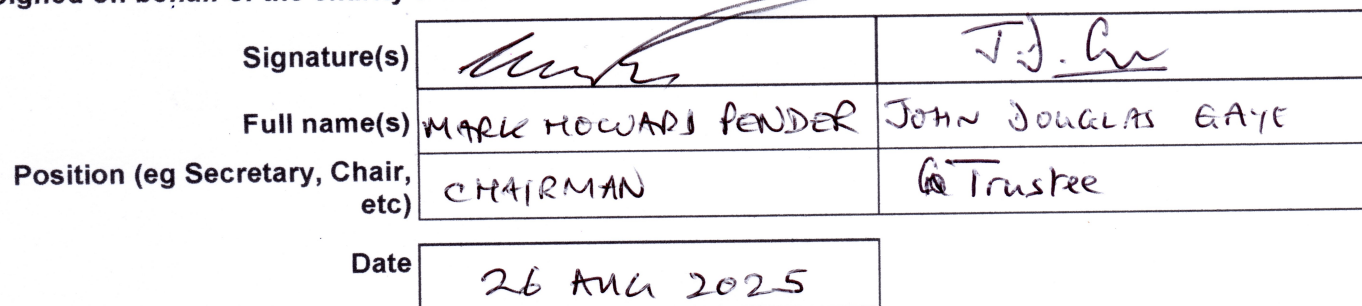 Signature(s) J.D.
Full name(s) MARK HOWARD PENDER JOHN DOUGLAS GAYE
Position (eg Secretary, Chair, etc) CHAIRMAN Trustee
Date 26 AUG 2025